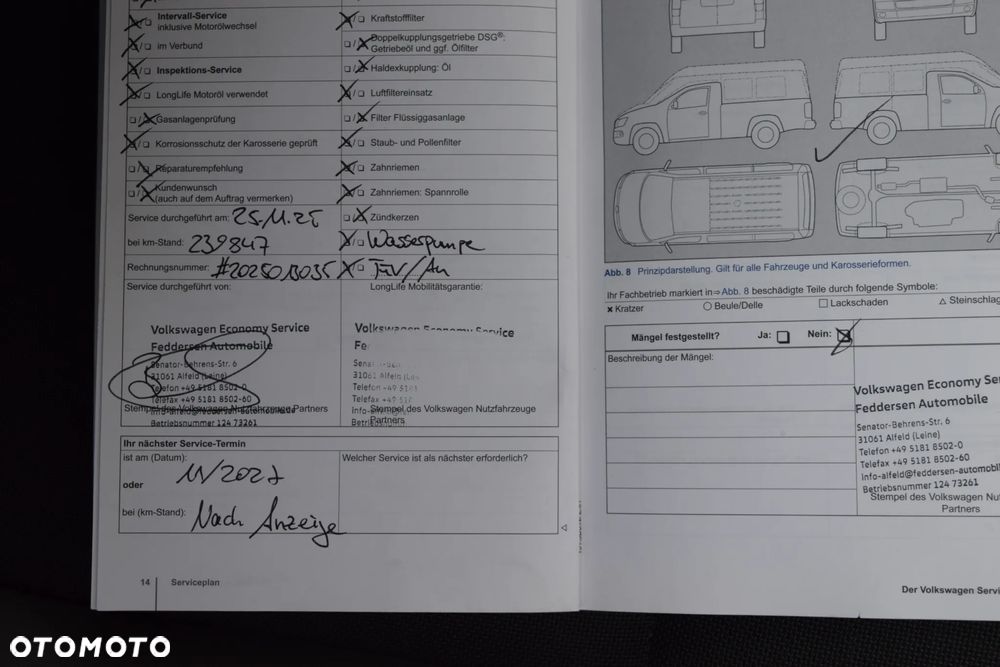 Intervall-Service
inklusive Motorölwechsel
im Verbund
Inspektions-Service
LongLife Motoröl verwendet
Gasanlagenprüfung
Korrosionsschutz der Karosserie geprüft
Reparaturempfehlung
Kundenwunsch
(auch auf dem Auftrag vermerken)
Service durchgeführt am: 25.11.25
bei km-Stand: 239847
Rechnungsnummer: #2025013035
Service durchgeführt von:
Volkswagen Economy Service
Feddersen Automobile
Senator-Behrens-Str. 6
31061 Alfeld (Leine)
Telefon +49 5181 8502-0
Telefax +49 5181 8502-60
Stempel des Volkswagen Nutzfahrzeuge Partners
Betriebsnummer 124 73261
Kraftstofffilter
Doppelkupplungsgetriebe DSG®:
Getriebeöl und ggf. Ölfilter
Haldexkupplung: Öl
Luftfiltereinsatz
Filter Flüssiggasanlage
Staub- und Pollenfilter
Zahnriemen
Zahnriemen: Spannrolle
Zündkerzen
Wasserpumpe
TÜV/Au
LongLife Mobilitätsgarantie:
Volkswagen Economy Service
Fe
Sena
31061 Alfeld (Le
Telefon +49 5181
Telefax +49 5
Info-
Stempel des Volkswagen Nutzfahrzeuge
Partners
Ihr nächster Service-Termin
ist am (Datum):
11/2027
oder
bei (km-Stand): Nach Anzeige
Welcher Service ist als nächster erforderlich?
14 Serviceplan
Abb. 8 Prinzipdarstellung. Gilt für alle Fahrzeuge und Karosserieformen.
Ihr Fachbetrieb markiert in ⇒ Abb. 8 beschädigte Teile durch folgende Symbole:
Kratzer
Beule/Delle
Lackschaden
Steinschlag
Mängel festgestellt? Ja: Nein:
Beschreibung der Mängel:
Volkswagen Economy Se
Feddersen Automobile
Senator-Behrens-Str. 6
31061 Alfeld (Leine)
Telefon +49 5181 8502-0
Telefax +49 5181 8502-60
Info-alfeld@feddersen-automobi
Betriebsnummer 124 73261
Stempel des Volkswagen Nut
Partners
Der Volkswagen Servi
OTOMOTO